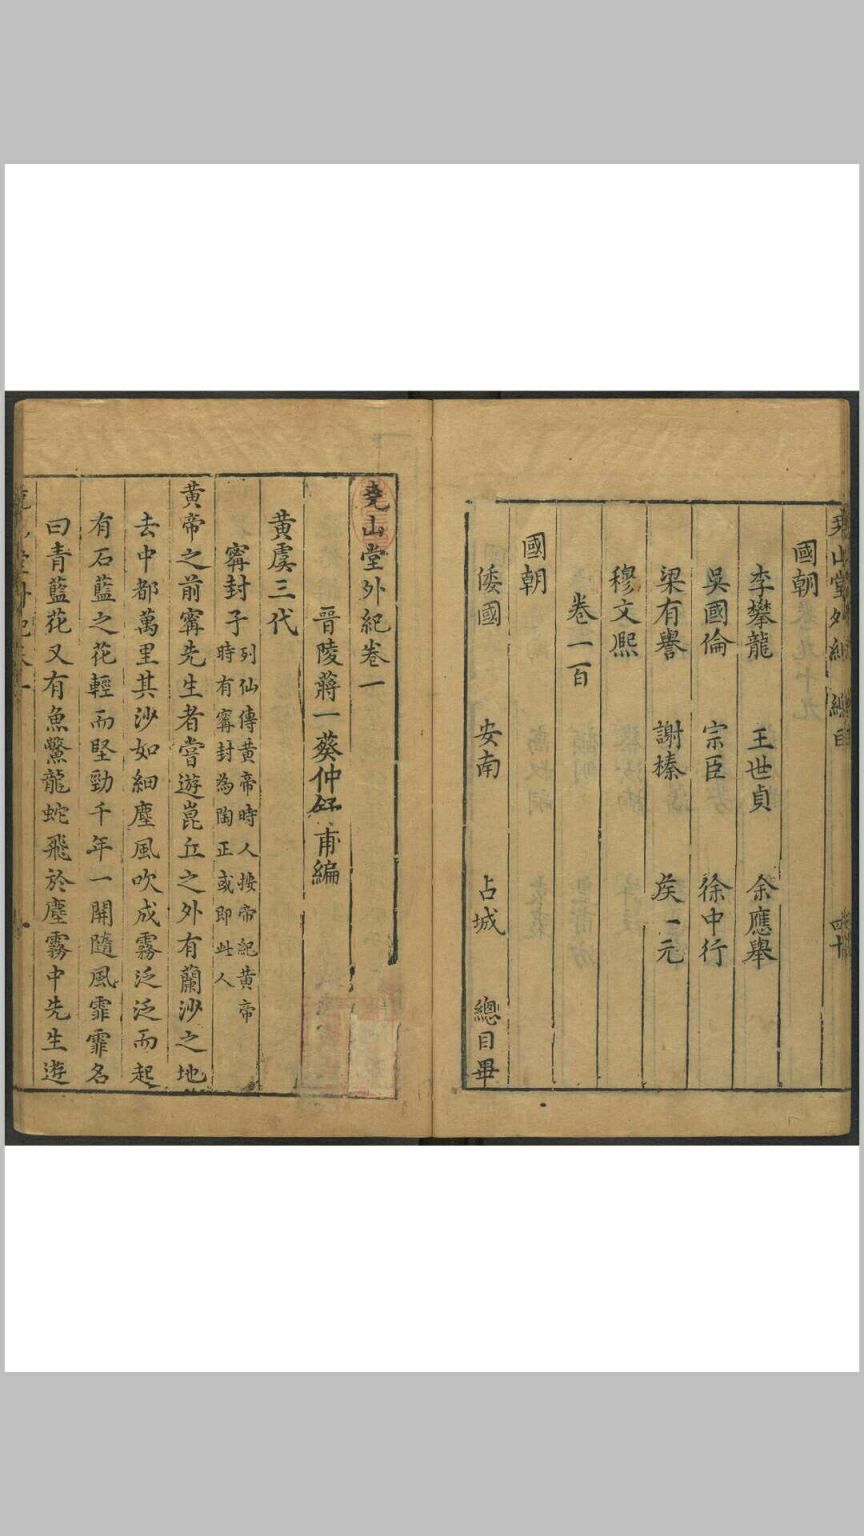 堯山堂外紀 總目
四十
國朝
李攀龍 王世貞 余應舉
吳國倫 宗臣 徐中行
梁有譽 謝榛 矦一元
穆文熙
卷一百
國朝
倭國 安南 占城 總目畢
堯山堂外紀卷一
晉陵蔣一葵仲舒甫編
黃虞三代
寗封子
列仙傳黃帝時人按帝紀黃帝
時有寗封為陶正或即此人
黃帝之前寗先生者嘗遊崑丘之外有蘭沙之地
去中都萬里其沙如細塵風吹成霧泛泛而起
有石藍之花輕而堅勁千年一開隨風霏霏名
曰青藍花又有魚鱉龍蛇飛於塵霧中先生遊